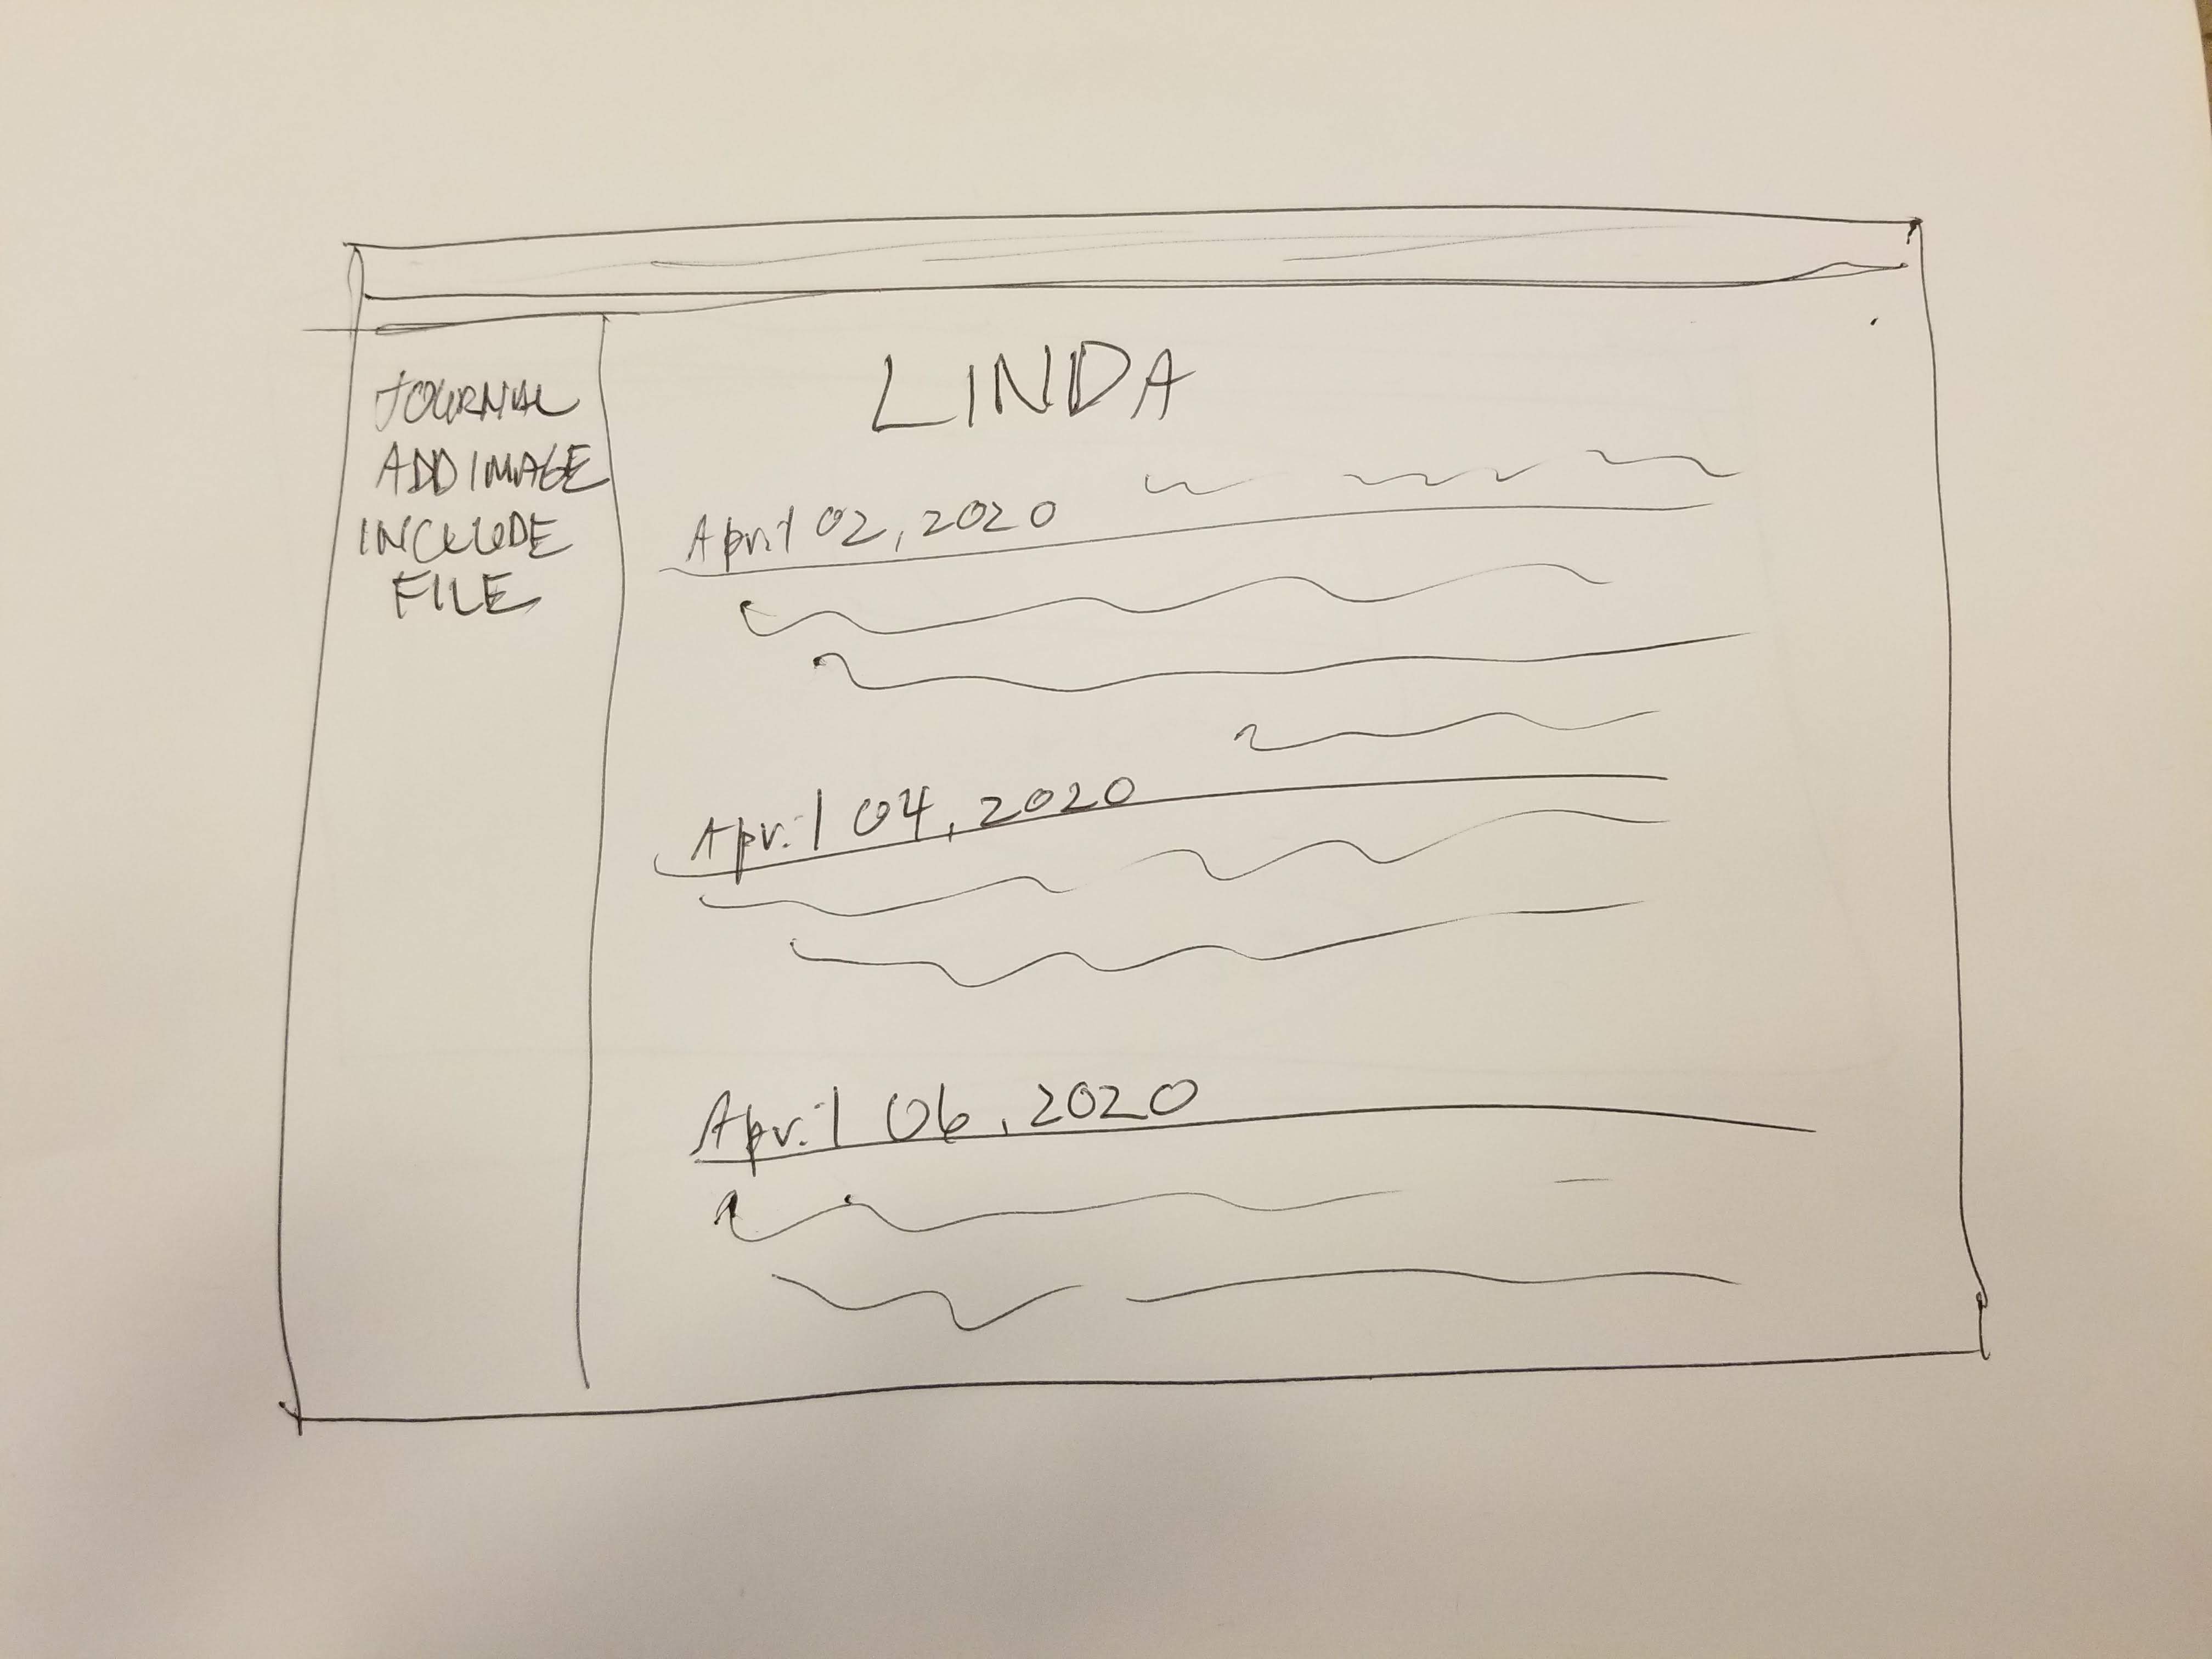 JOURNAL
ADD IMAGE
INCLUDE
FILE
LINDA
April 02, 2020
April 04, 2020
April 06, 2020